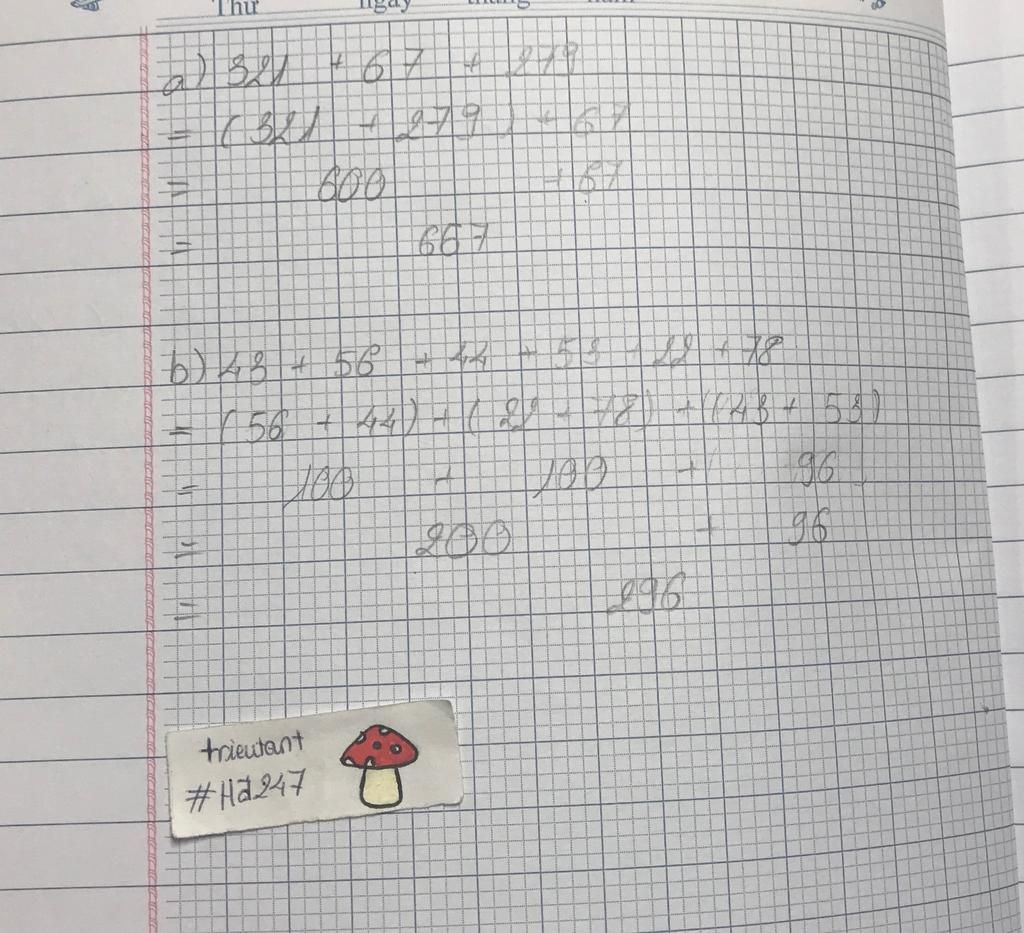 Thứ ngày tháng năm
a) 321 + 67 + 279
= (321 + 279) + 67
= 600 + 67
= 667
b) 43 + 56 + 44 + 53 + 22 + 78
= (56 + 44) + (22 + 78) + (43 + 53)
= 100 + 100 + 96
= 200 + 96
= 296
trieutant
#Hd247